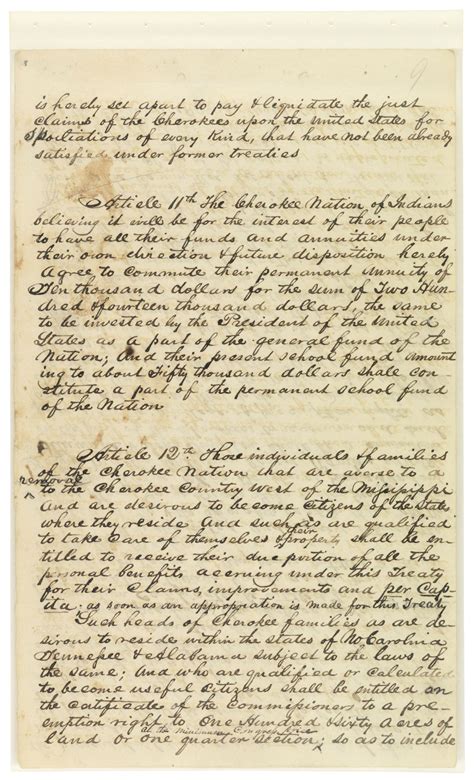 9
is hereby set apart to pay & liquidate the just
claims of the Cherokees upon the United States for
Spoliations of every Kind, that have not been already
satisfied under former treaties
Article 11th The Cherokee Nation of Indians
believing it will be for the interest of their people
to have all their funds and annuities under
their own direction & future disposition hereby
Agree to commute their permanent Annuity of
Ten thousand dollars for the sum of Two Hun-
dred & fourteen thousand dollars, the same
to be invested by the President of the United
States as a part of the general fund of the
Nation; And their present school fund amount
ing to about Fifty thousand dollars shall con-
stitute a part of the permanent school fund
of the Nation
Article 12th Those individuals & families
of the Cherokee Nation that are averse to a
removal
to the Cherokee Country West of the Missisippi
And are desirous to become Citizens of the States
where they reside And such as are qualified
to take care of themselves & their property shall be en-
titled to receive their due portion of all the
personal benefits accruing under this Treaty
for their Claims, improvements and per Cap-
ita; as soon as an appropriation is made for this Treaty
Such heads of Cherokee families as are de-
sirous to reside within the States of No Carolina
Tennessee & Alabama subject to the laws of
the same; And who are qualified or calculated
to become useful Citizens shall be entitled on
the certificate of the Commissioners to a pre-
emption right to One Hundred & Sixty Acres of
land or one quarter Section; at the minimum Congress Price so as to include